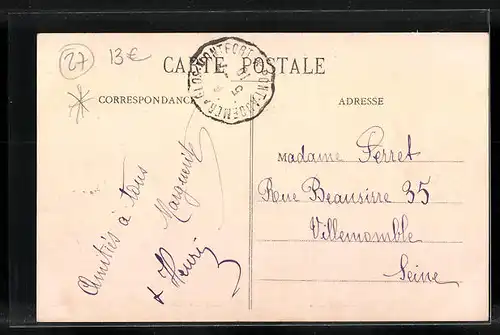 27
13€
CARTE POSTALE
CORRESPONDANCE
ADRESSE
Amitiés à tous
Marguerite
& Henri
Madame Perret
Rue Beausire 35
Villemomble
Seine